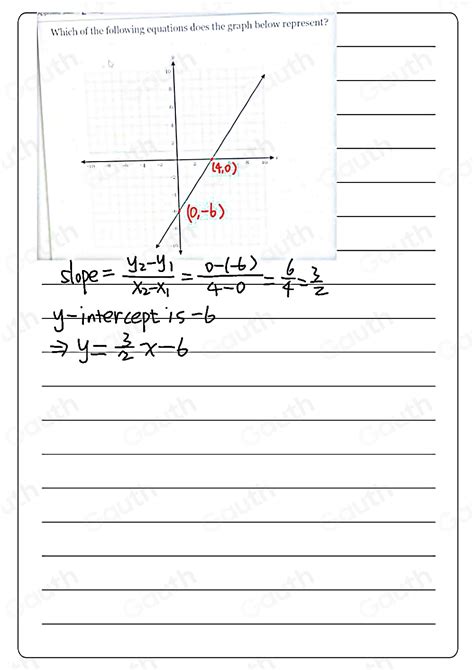 Which of the following equations does the graph below represent?
y
10
(4,0)
(0,-6)
slope = \frac{y_2-y_1}{x_2-x_1} = \frac{0-(-6)}{4-0} = \frac{6}{4} = \frac{3}{2}
y-intercept is -6
⇒ y = \frac{3}{2} x - 6
Gauth